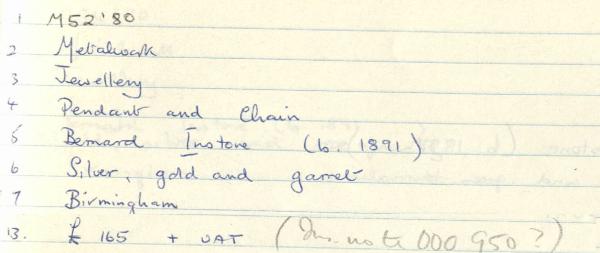 1 M52'80
2 Metalwork
3 Jewellery
4 Pendant and Chain
5 Bernard Instone (b. 1891)
6 Silver, gold and garnet
7 Birmingham
13. £ 165 + VAT (Ins. note 000 950?)